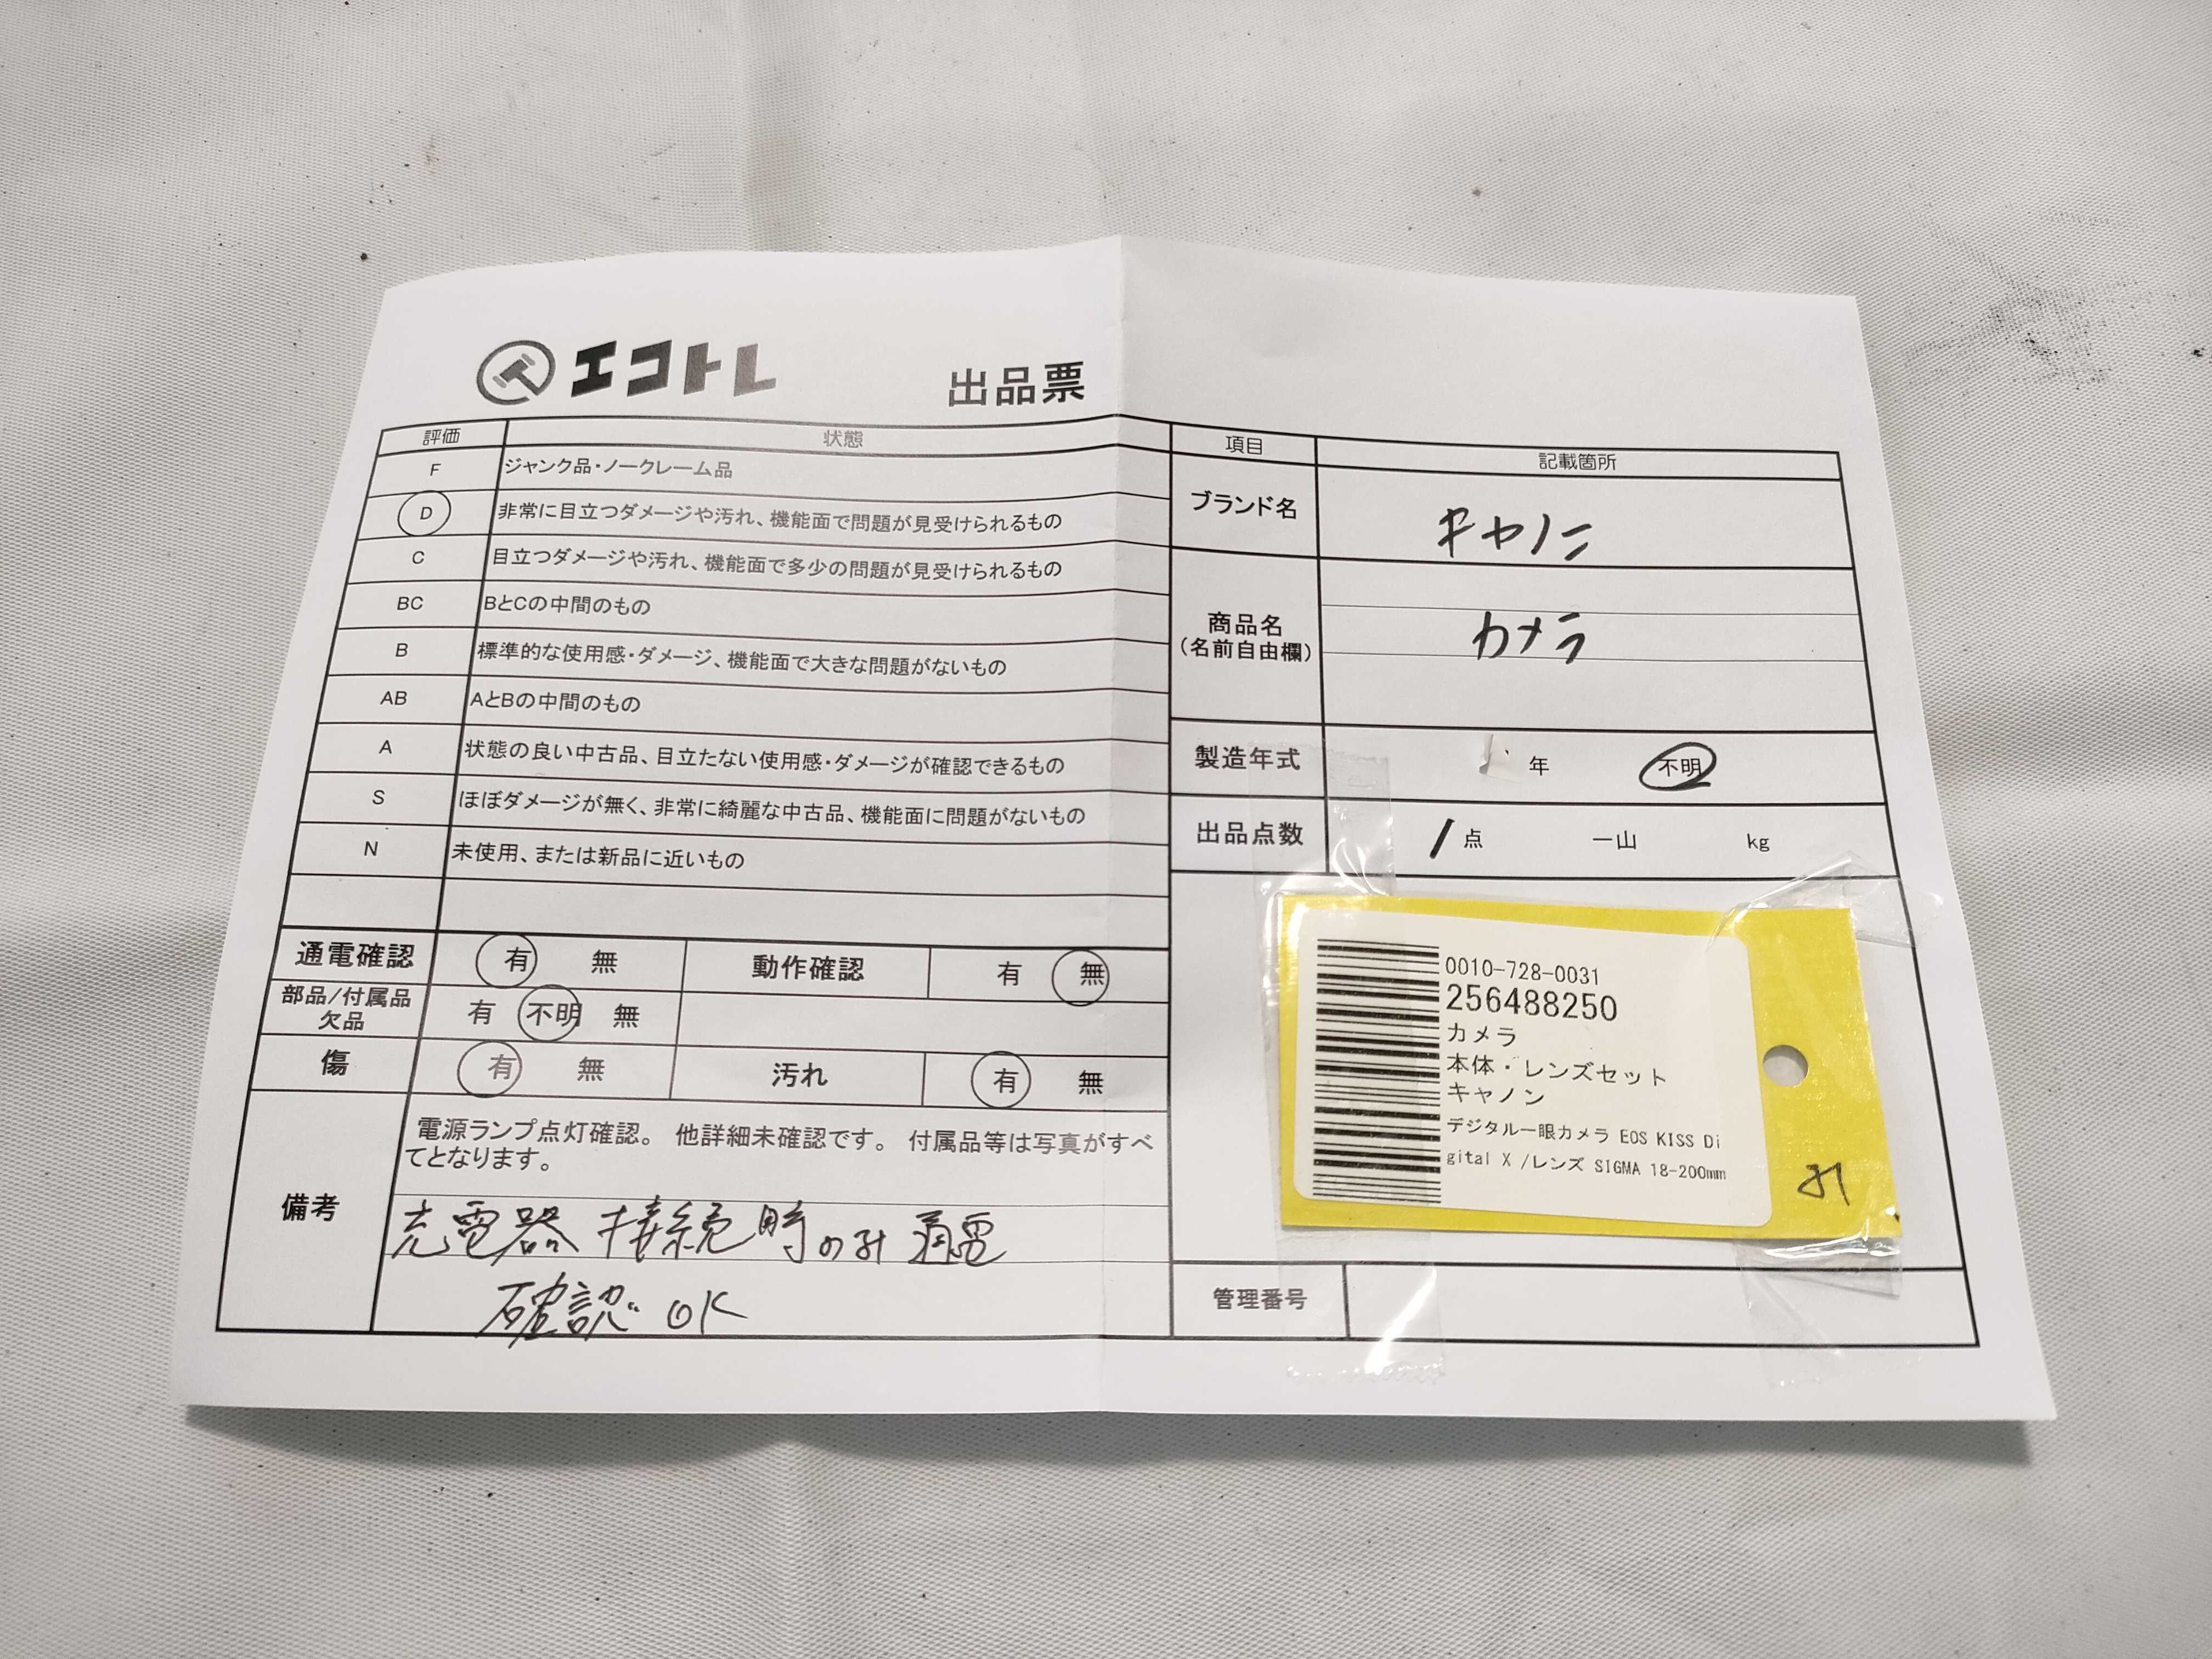 エコトレ 出品票
評価 状態
F ジャンク品・ノークレーム品
D 非常に目立つダメージや汚れ、機能面で問題が見受けられるもの
C 目立つダメージや汚れ、機能面で多少の問題が見受けられるもの
BC BとCの中間のもの
B 標準的な使用感・ダメージ、機能面で大きな問題がないもの
AB AとBの中間のもの
A 状態の良い中古品、目立たない使用感・ダメージが確認できるもの
S ほぼダメージが無く、非常に綺麗な中古品、機能面に問題がないもの
N 未使用、または新品に近いもの
通電確認 有 無 動作確認 有 無
部品/付属品
欠品
有 不明 無
傷 有 無 汚れ 有 無
備考
電源ランプ点灯確認。 他詳細未確認です。 付属品等は写真がすべ
てとなります。
充電器 接続時のみ 通電
確認 OK
項目 記載箇所
ブランド名 キャノン
商品名
(名前自由欄)
カメラ
製造年式 年 不明
出品点数 1 点 一山 kg
0010-728-0031
256488250
カメラ
本体・レンズセット
キャノン
デジタル一眼カメラ EOS KISS Di
gital X /レンズ SIGMA 18-200mm
管理番号